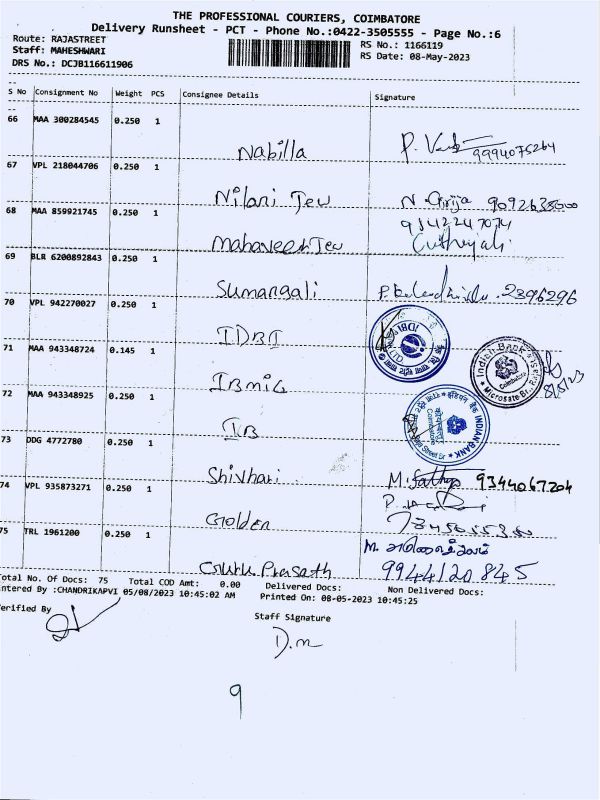 THE PROFESSIONAL COURIERS, COIMBATORE
Delivery Runsheet - PCT - Phone No.:0422-3505555 - Page No.:6
Route: RAJASTREET
RS No.: 1166119
Staff: MAHESHWARI
RS Date: 08-May-2023
DRS No.: DCJB116611906
S No Consignment No Weight PCS Consignee Details Signature
66 MAA 300284545 0.250 1
Nabilla P. 9994075264
67 VPL 218044706 0.250 1
Nilani Jew N. Girija 9092635000
68 MAA 859921745 0.250 1
9342247074
Mahaveer Jew
69 BLR 6200892843 0.250 1
Sumangali 2396296
70 VPL 942270027 0.250 1
IDBI IDBI BANK LTD
71 MAA 943348724 0.145 1
Indian Bank
Coimbatore
8/5/23
72 MAA 943348925 0.250 1
IB INDIAN BANK
Coimbatore
73 DDG 4772780 0.250 1
Shivhari M. Sathya 9344067204
74 VPL 935873271 0.250 1
Golden
75 TRL 1961200 0.250 1
M.
Guru Prasath 9944120845
Total No. Of Docs: 75 Total COD Amt: 0.00 Delivered Docs: Non Delivered Docs:
Entered By :CHANDRIKAPVI 05/08/2023 10:45:02 AM Printed On: 08-05-2023 10:45:25
Verified By
Staff Signature
D.m
9